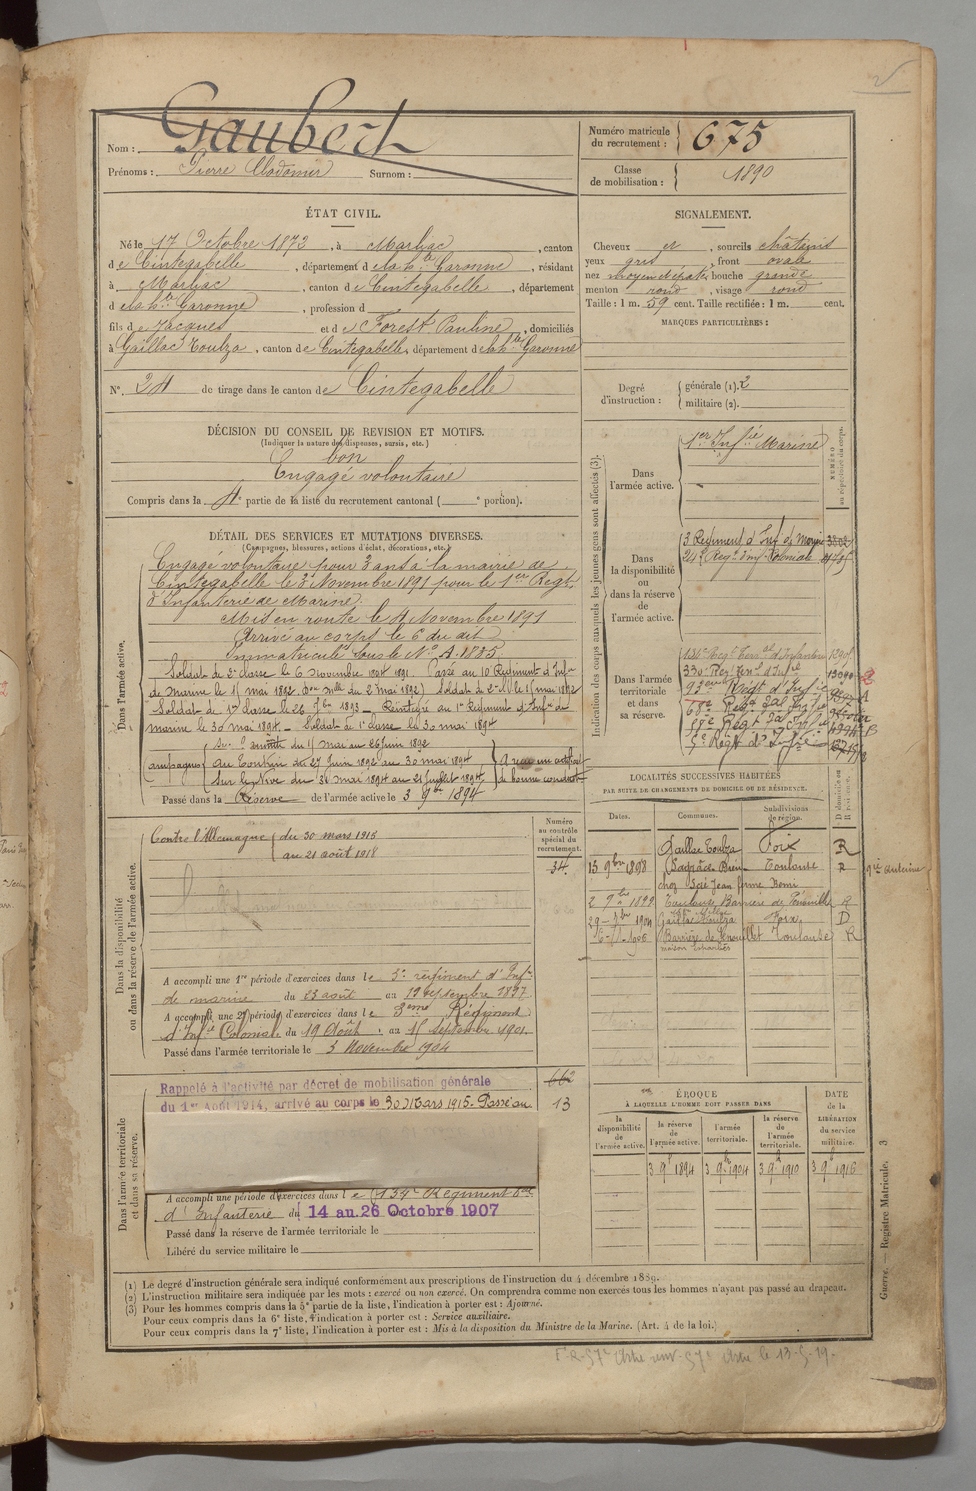 2
Gaubert
Nom :
Prénoms : Pierre Clodomir Surnom :
Numéro matricule du recrutement : 675
Classe de mobilisation : 1890
ÉTAT CIVIL.
Né le 17 Octobre 1873, à Marliac, canton
de Cintegabelle, département de la hte Garonne, résidant
à Marliac, canton de Cintegabelle, département
de la hte Garonne, profession d
fils de Jacques et de Forest Pauline, domiciliés
à Gaillac Toulza, canton de Cintegabelle, département de la hte Garonne
N° 24 de tirage dans le canton de Cintegabelle
SIGNALEMENT.
Cheveux et, sourcils châtains
yeux gris, front ovale
nez moyen épaté, bouche grande
menton rond, visage rond
Taille : 1 m. 59 cent. Taille rectifiée : 1 m. cent.
MARQUES PARTICULIÈRES :
Degré d'instruction : générale (1). 2
militaire (2).
DÉCISION DU CONSEIL DE REVISION ET MOTIFS.
(Indiquer la nature des dispenses, sursis, etc.)
bon
Engagé volontaire
Compris dans la 4e partie de la liste du recrutement cantonal ( e portion).
DÉTAIL DES SERVICES ET MUTATIONS DIVERSES.
(Campagnes, blessures, actions d'éclat, décorations, etc.)
Dans l'armée active.
Engagé volontaire pour 3 ans à la mairie de
Cintegabelle le 3 Novembre 1891 pour le 1er Regt
d'Infanterie de Marine.
Mis en route le 4 Novembre 1891
Arrivé au corps le 6 du dit
Immatriculé sous le No A.1835
Soldat de 2e classe le 6 Novembre 1891. Passé au 10e Régiment d'Infie
de Marine le 15 mai 1892
Soldat de 1re classe le 26 1893 Réintégré au 1er Régiment d'Infie de
marine le 30 mai 1894. Soldat de 1e classe le 30 mai 1894
Campagnes du 15 mai au 26 juin 1892
au Tonkin du 27 juin 1892 au 30 mai 1894
Sur le Nive du 31 mai 1894 au 21 juillet 1894
A reçu un certificat
de bonne conduite
Passé dans la Réserve de l'armée active le 3 9bre 1894
Indication des corps auxquels les jeunes gens sont affectés (3).
NUMÉRO au répertoire du corps.
Dans l'armée active.
1er Infie Marine
Dans la disponibilité ou dans la réserve de l'armée active.
3 Régiment d'Inf de Marine
24e Regt d'Infie Coloniale
Dans l'armée territoriale et dans sa réserve.
134e Regt Teral d'Infanterie
LOCALITÉS SUCCESSIVES HABITÉES
PAR SUITE DE CHANGEMENTS DE DOMICILE OU DE RÉSIDENCE.
Dates. Communes. Subdivisions de région. D domicile ou R résidence.
Gaillac Toulza Foix R
13 9bre 1898 Toulouse R
2 1899 Toulouse R
1904 Gaillac Toulza Foix D
1906 Toulouse R
Dans la disponibilité ou dans la réserve de l'armée active.
Numéro au contrôle spécial du recrutement.
34
Contre l'Allemagne du 30 mars 1915
au 21 août 1918
A accompli une 1re période d'exercices dans le 3e régiment d'Infie
de marine du 23 août au 19 septembre 1897
A accompli une 2e période d'exercices dans le 3eme Régiment
d'Infie Coloniale du 19 Août au 15 septembre 1901
Passé dans l'armée territoriale le 3 Novembre 1904
Dans l'armée territoriale et dans sa réserve.
662
13
Rappelé à l'activité par décret de mobilisation générale
du 1er Août 1914, arrivé au corps le 30 Mars 1915. Passé au
A accompli une période d'exercices dans le 134e Régiment
d'Infanterie du 14 au 26 Octobre 1907
Passé dans la réserve de l'armée territoriale le
Libéré du service militaire le
ÉPOQUE
À LAQUELLE L'HOMME DOIT PASSER DANS
la disponibilité de l'armée active.
la réserve de l'armée active.
l'armée territoriale.
la réserve de l'armée territoriale.
DATE de la LIBÉRATION du service militaire.
3 9bre 1894
3 9bre 1904
3 9bre 1910
3 9bre 1916
Guerre. — Registre Matricule. 3
(1) Le degré d'instruction générale sera indiqué conformément aux prescriptions de l'instruction du 4 décembre 1889.
(2) L'instruction militaire sera indiquée par les mots : exercé ou non exercé. On comprendra comme non exercés tous les hommes n'ayant pas passé au drapeau.
(3) Pour les hommes compris dans la 5e partie de la liste, l'indication à porter est : Ajourné.
Pour ceux compris dans la 6e liste, l'indication à porter est : Service auxiliaire.
Pour ceux compris dans la 7e liste, l'indication à porter est : Mis à la disposition du Ministre de la Marine. (Art. 4 de la loi.)